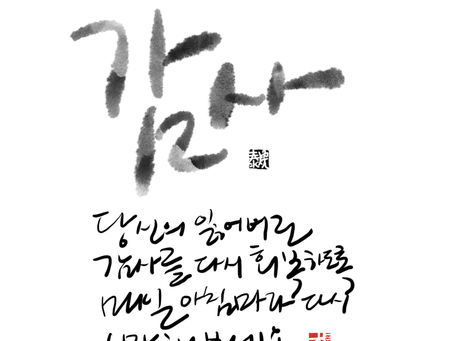 감사
당신의 잃어버린
감사를 다시 회복하도록
매일 아침마다? 다시?